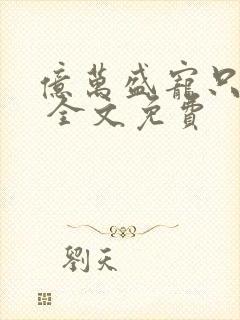 億萬盛寵只
全文免費
劉天